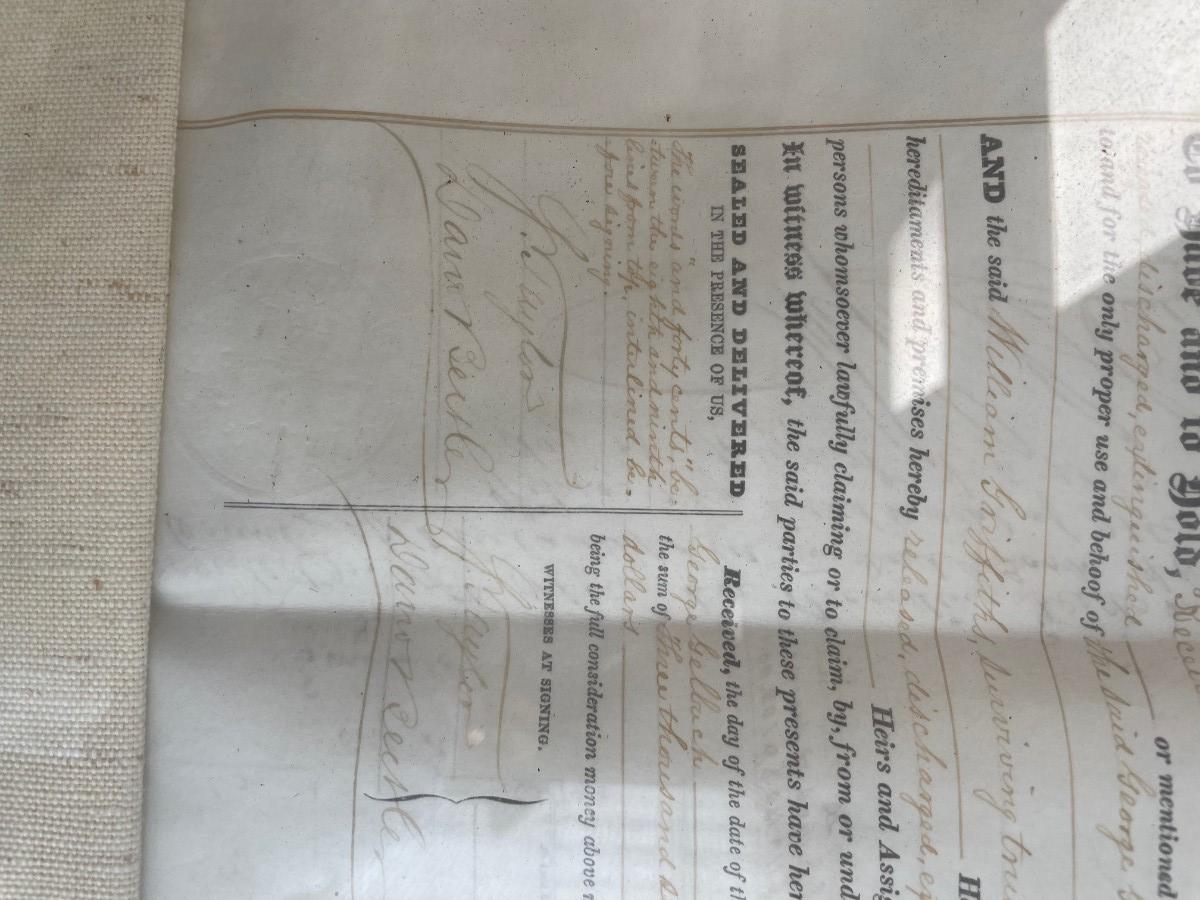 To Have and to Hold,
or mentioned
discharged, extinguished
to and for the only proper use and behoof of the said George
AND the said William Griffiths, surviving
hereditaments and premises hereby released, discharged,
Heirs and Assig
persons whomsoever lawfully claiming or to claim, by, from or und
In witness whereof, the said parties to these presents have her
SEALED AND DELIVERED
IN THE PRESENCE OF US,
The words "and forty cents," be-
tween the eighth and ninth
lines from top, interlined be-
fore signing.
Received, the day of the date of th
George
the sum of Three thousand
dollars
being the full consideration money above
WITNESSES AT SIGNING.